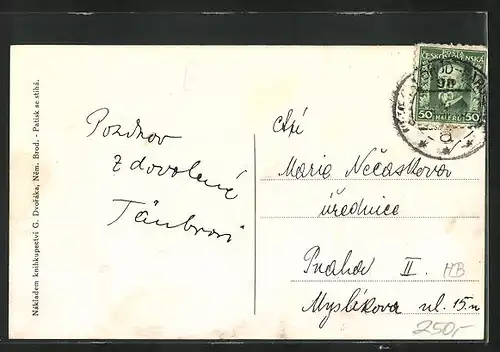 Nákladem knihkupectví G. Dvořáka, Něm. Brod. - Patisk se stíhá.
POŠTA
ČESKOSLOVENSKÁ
50 HALÉŘŮ 50
Pozdrav
z dovolené
Ctí
Marie Nečaskova
úřednice
Praha II.
Myslíkova ul. 15
HB
250,-